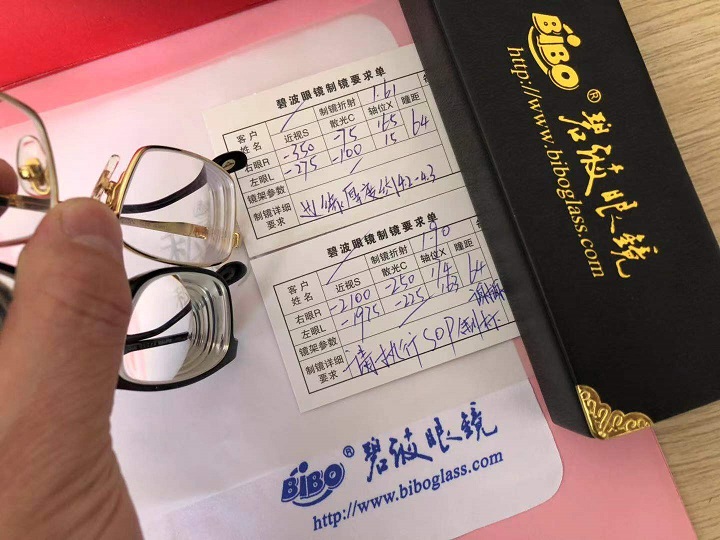 碧波眼镜制镜要求单
客户姓名 制镜折射 1.61
近视S 散光C 轴位X 瞳距
右眼R -350 -75 165 64
左眼L -275 -100 15
镜架参数
制镜详细要求 边缘厚度约4.2-4.3
碧波眼镜制镜要求单
客户姓名 制镜折射 1.90
近视S 散光C 轴位X 瞳距
右眼R -2100 -250 14 64
左眼L -1975 -225 163
镜架参数
制镜详细要求 请执行SOP
BiBO® 碧波眼镜
http://www.biboglass.com
BiBO® 碧波眼镜
http://www.biboglass.com